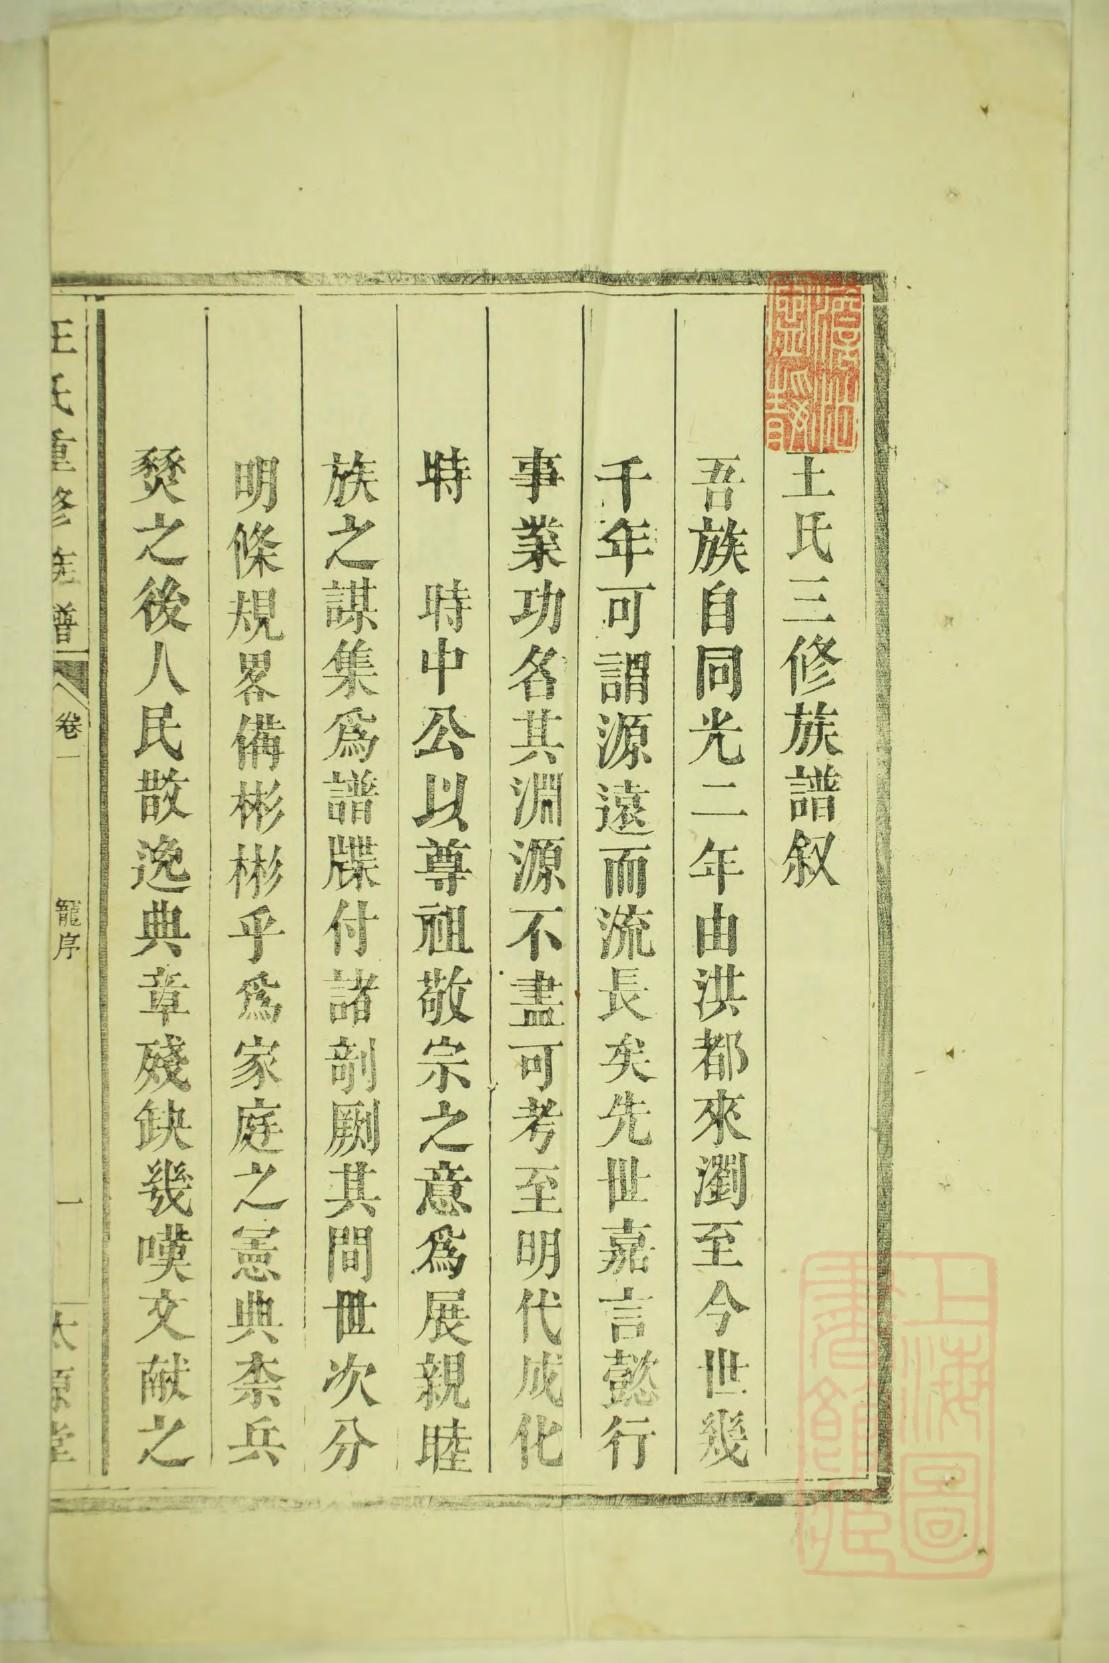 王氏三修族譜叙
吾族自同光二年由洪都來瀏至今世幾
千年可謂源遠而流長矣先世嘉言懿行
事業功名其淵源不盡可考至明代成化
時　時中公以尊祖敬宗之意爲展親睦
族之謀集爲譜牒付諸剞劂其間世次分
明條規畧備彬彬乎爲家庭之憲典柰兵
燹之後人民散逸典章殘缺幾嘆文献之
王氏重修族譜
卷一
龍序
一
太原堂
上海圖書館藏